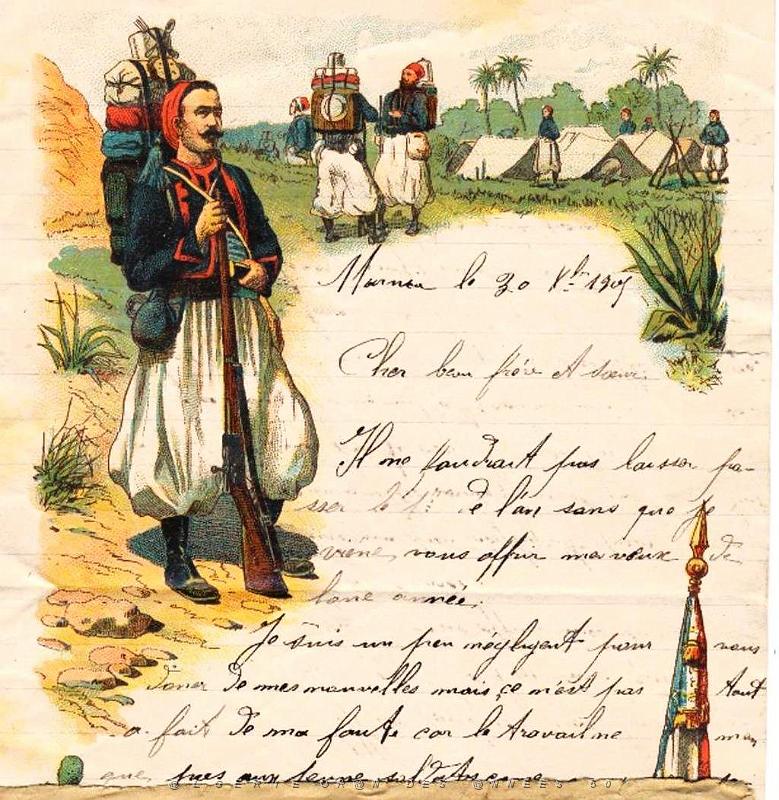 Marnia le 30 Xbre 1905
Cher beau frére et sœur
Il ne faudrait pas laisser pa-
sser le 1er de l'an sans que je
viene vous offrir mes vœux de
bone année.
Je suis un peu négligent pour vous
doner de mes nouvelles mais ce n'est pas tout
a fait de ma faute car le travail ne man
que pas aux